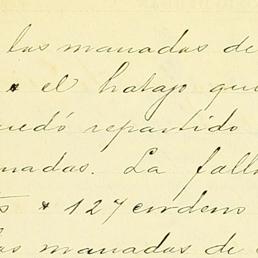 las manadas de
* el hatajo que
quedó repartido
nadas. La falla
* 127 cordeno
las manadas de